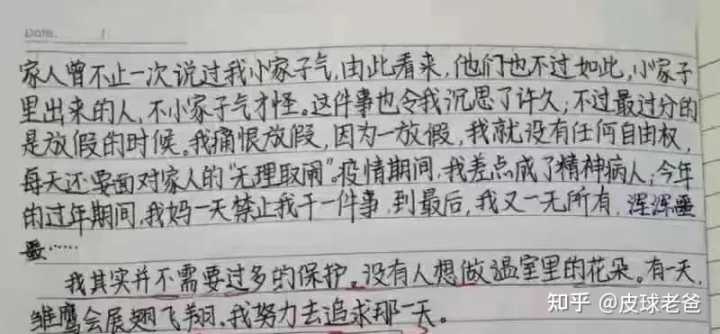 Date.    /
家人曾不止一次说过我小家子气,由此看来,他们也不过如此,小家子
里出来的人,不小家子气才怪。这件事也令我沉思了许久;不过最过分的
是放假的时候。我痛恨放假,因为一放假,我就没有任何自由权,
每天还要面对家人的“无理取闹”。疫情期间,我差点成了精神病人;今年
的过年期间,我妈一天禁止我干一件事,到最后,我又一无所有,浑浑噩
噩……
我其实并不需要过多的保护。没有人想做温室里的花朵。有一天,
雏鹰会展翅飞翔,我努力去追求那一天。
知乎 @皮球老爸